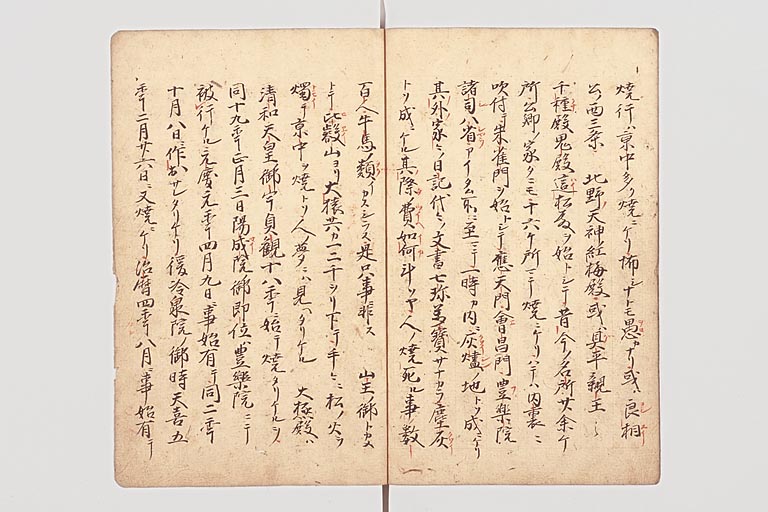 焼行ハ京中多ク焼ニケリ怖シナトモ愚カナリ或ハ良相
公西三条 北野ノ天神紅梅殿或ハ具平親王ノ
千種殿鬼殿這松殿ヲ始トシテ昔今ノ名所廿余ケ
所公卿ノ家タニモ十六ケ所マテ焼ニケリハテハ内裏ニ
吹付テ朱雀門ヲ始トシテ應天門會昌門豊楽院
諸司八省アイタム所ニ至マテ一時カ内ニ灰燼ノ地トソ成ニケリ
其外家ミノ日記代ミノ文書七珍万寳サナカラ塵灰
トソ成ニケル其際ノ費如何斗ソヤ人ノ焼死ル事数
百人牛馬ノ類ハイカスヲシラス是只事ニ非ス 山王ノ御トカメ
トテ比叡山ヨリ大猿共カ一二千ヲリ下テ手ミニ松ノ火ヲ
燭テ京中ヲ焼トソ人ノ夢ニハ見ヘタリケル 大極殿ハ
清和天皇ノ御宇貞観十八年ニ始テ焼タリケルヲ
同十九年正月三日陽成院ノ御即位ハ豊楽院ニテ
被行ケル元慶元年四月九日ニ事始有テ同二年
十月八日ニ作出サレタリケリ後冷泉院ノ御時天喜五
年二月廿六日ニ又焼ニケリ治暦四年八月ニ事始有テ